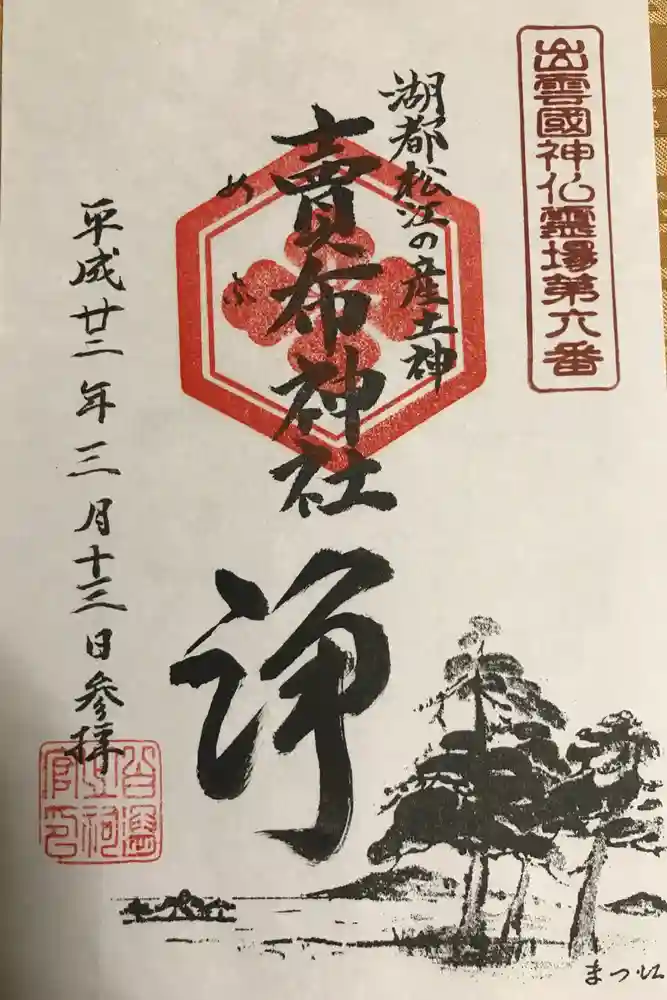 出雲國神仏霊場第六番
湖都松江の産土神
賣布神社
めふ
浄
平成廿二年三月十三日参拝
まつ江